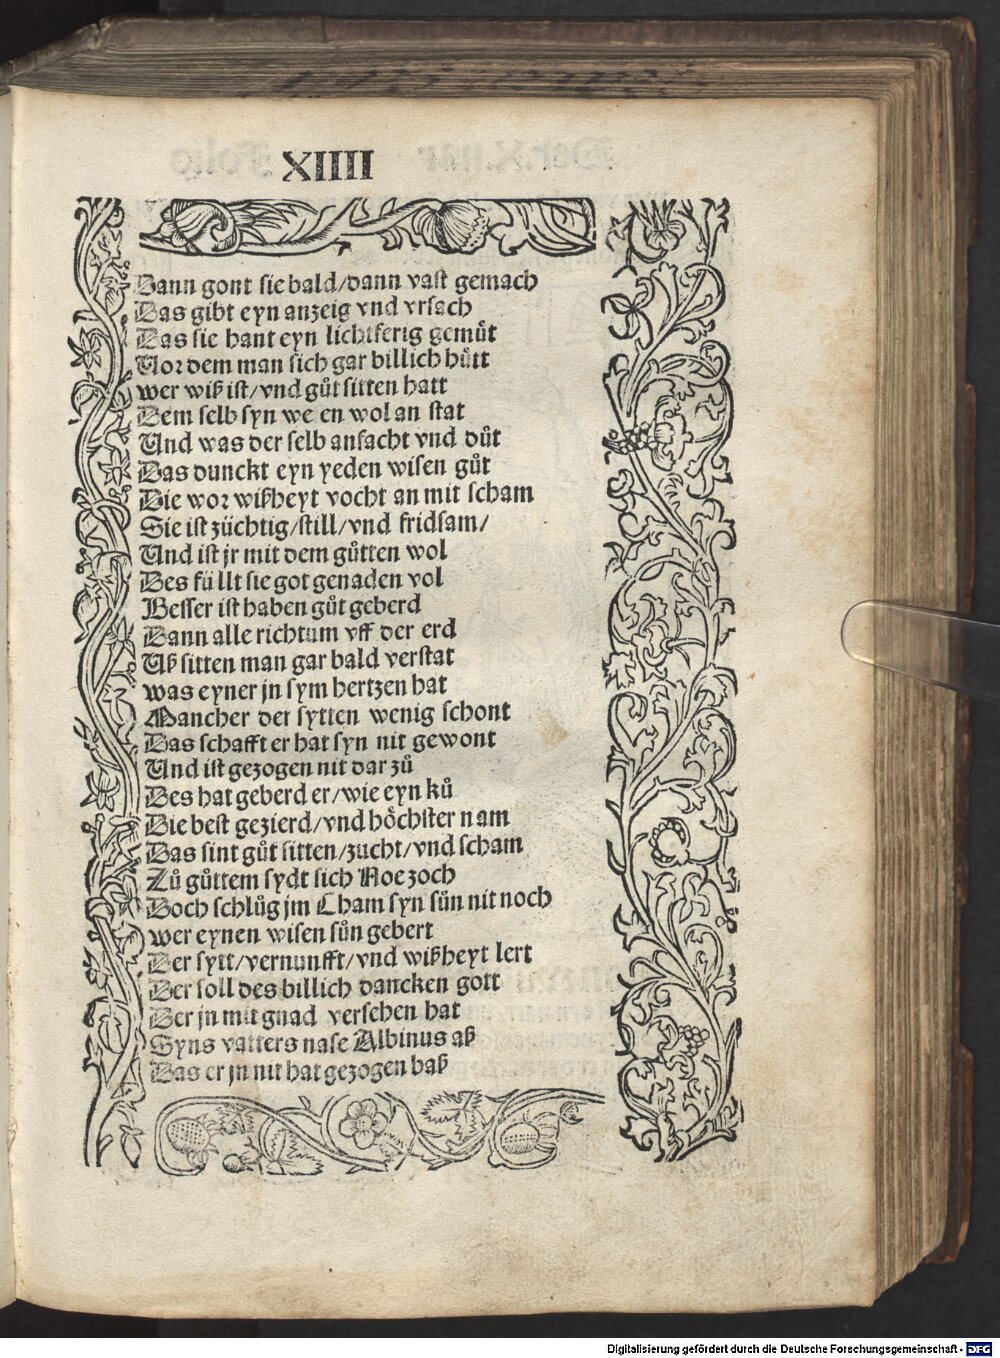 XIIII
Dann gont sie bald/dann vast gemach
Das gibt eyn anzeig vnd vrsach
Das sie hant eyn lichtferig gemuͤt
Vor dem man sich gar billich huͤtt
wer wiß ist/vnd guͦt sitten hatt
Dem selb syn we en wol an stat
Vnd was der selb anfacht vnd duͦt
Das dunckt eyn yeden wisen guͦt
Die wor wißheyt vocht an mit scham
Sie ist züchtig/still/vnd fridsam/
Vnd ist jr mit dem guͦtten wol
Des fü llt sie got genaden vol
Besser ist haben guͦt geberd
Dann alle richtum vff der erd
Vß sitten man gar bald verstat
was eyner jn sym hertzen hat
Mancher der sytten wenig schont
Das schafft er hat syn nit gewont
Vnd ist gezogen nit dar zuͦ
Des hat geberd er/wie eyn kuͦ
Die best gezierd/vnd hoͤchster nam
Das sint guͦt sitten/zucht/vnd scham
Zuͦ guͦttem sydt sich Noe zoch
Doch schluͦg jm Cham syn suͦn nit noch
wer eynen wisen suͦn gebert
Der sytt/vernunfft/vnd wißheyt lert
Der soll des billich dancken gott
Der jn mit gnad versehen hat
Syns vatters nase Albinus aß
Das er jn nit hat gezogen baß
Digitalisierung gefördert durch die Deutsche Forschungsgemeinschaft - DFG